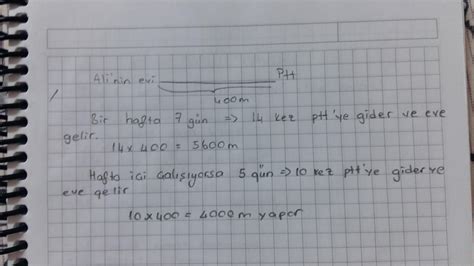 Ali'nin evi Ptt
400m
Bir hafta 7 gün => 14 kez ptt'ye gider ve eve
gelir.
14 x 400 = 5600m
Hafta içi çalışıyorsa 5 gün => 10 kez ptt'ye gider ve
eve gelir
10 x 400 = 4000m yapar